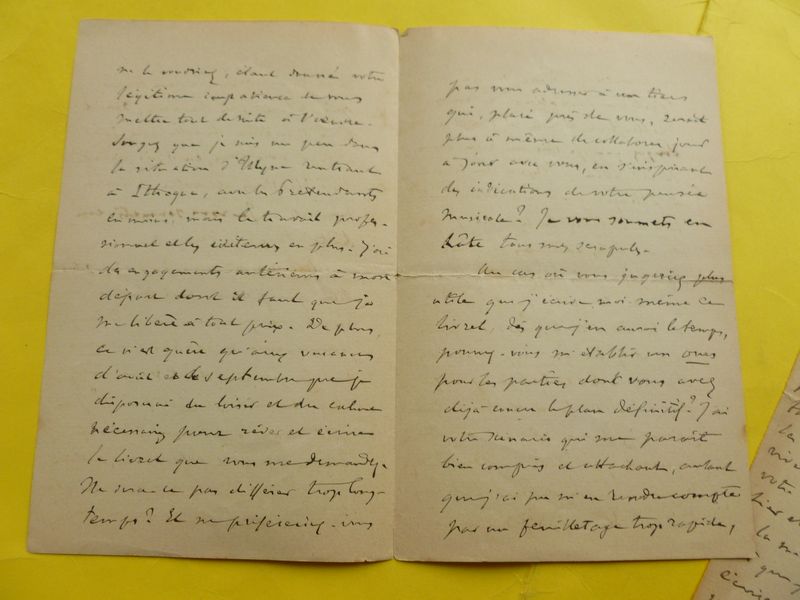 me le voudriez, étant donnée votre
légitime impatience de vous
mettre tout de suite à l'œuvre.
Songez que je suis un peu dans
la situation d'Ulysse rentrant
à Ithaque, avec les Prétendants
en moins, mais le travail profes-
sionnel et les éditeurs en plus. J'ai
des engagements antérieurs à mon
départ dont il faut que je
me libère à tout prix. De plus,
ce n'est guère qu'aux vacances
d'août et de septembre que je
disposerai du loisir et du calme
nécessaires pour rêver et écrire
le livret que vous me demandez.
Ne sera-ce pas différer trop long-
temps? Et ne préféreriez-vous
pas vous adresser à un tiers
qui, placé près de vous, serait
plus à même de collaborer jour
à jour avec vous, en s'inspirant
des indications de votre pensée
musicale? Je vous soumets en
hâte tous mes scrupules.
Au cas où vous jugeriez plus
utile que j'écrive moi-même ce
livret, dès que j'en aurai le temps,
pourriez-vous m'établir un
pour les parties dont vous avez
déjà conçu le plan définitif? J'ai
votre scénario qui me paraît
bien compris et attachant, autant
que j'ai pu m'en rendre compte
par un feuilletage trop rapide,